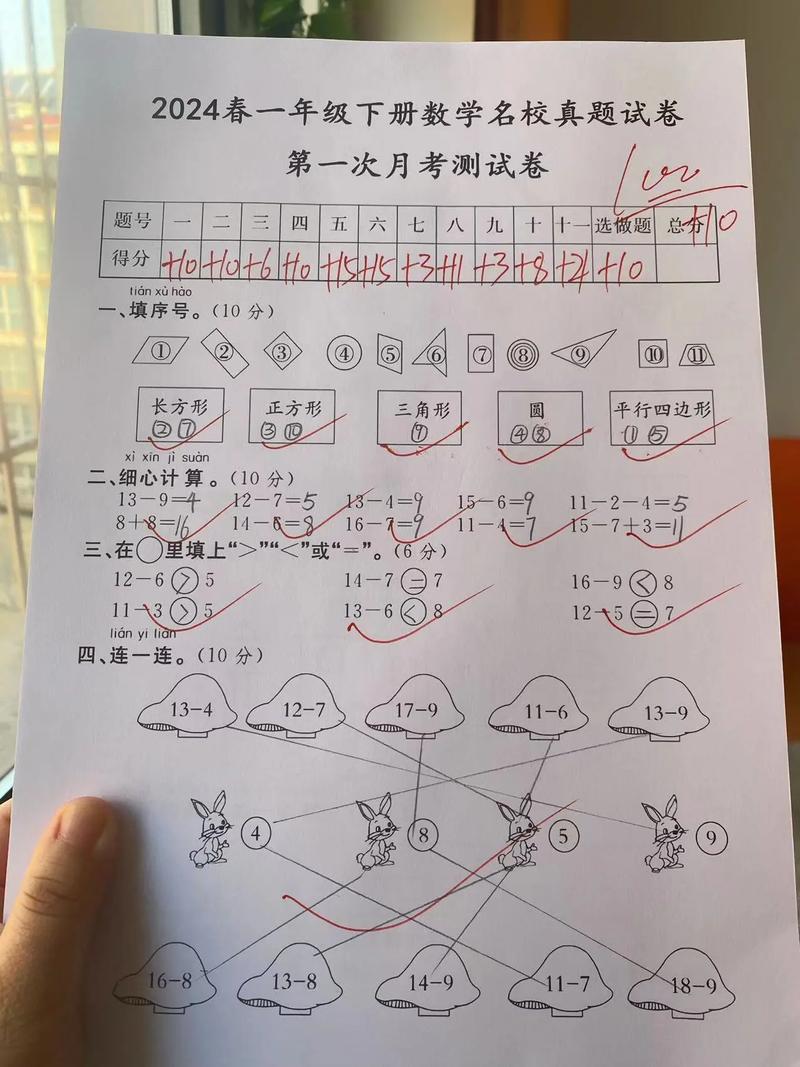 2024春一年级下册数学名校真题试卷
第一次月考测试卷
100
+10
题号 一 二 三 四 五 六 七 八 九 十 十一 选做题 总分
得分 +10 +10 +6 +10 +15 +15 +3 +3 +8 +24 +10
tián xù hào
一、填序号。(10 分)
① ② ③ ④ ⑤ ⑥ ⑦ ⑧ ⑨ ⑩ ⑪
长方形 正方形 三角形 圆 平行四边形
②⑦ ③⑩ ④⑧ ①⑤
xì xīn jì suàn
二、细心计算。(10 分)
13-9=4 12-7=5 13-4=9 15-6=9 11-2-4=5
8+8=16 14-6=8 16-7=9 11-4=7 15-7+3=11
三、在○里填上“>”“<”或“=”。(6 分)
12-6>5 14-7=7 16-9<8
11-3>5 13-6<8 12-5=7
lián yi lián
四、连一连。(10 分)
13-4 12-7 17-9 11-6 13-9
4 8 5 9
16-8 13-8 14-9 11-7 18-9